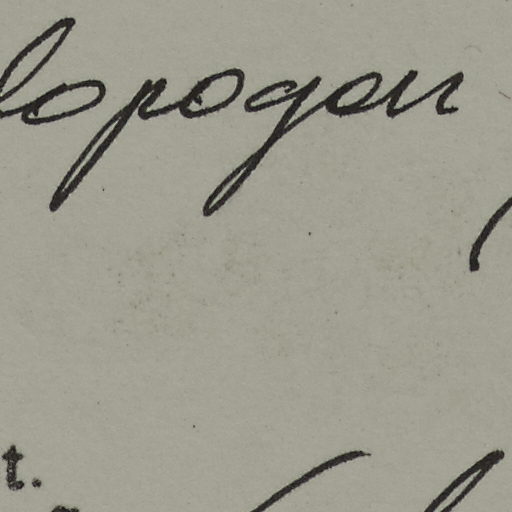 lopogon
t.